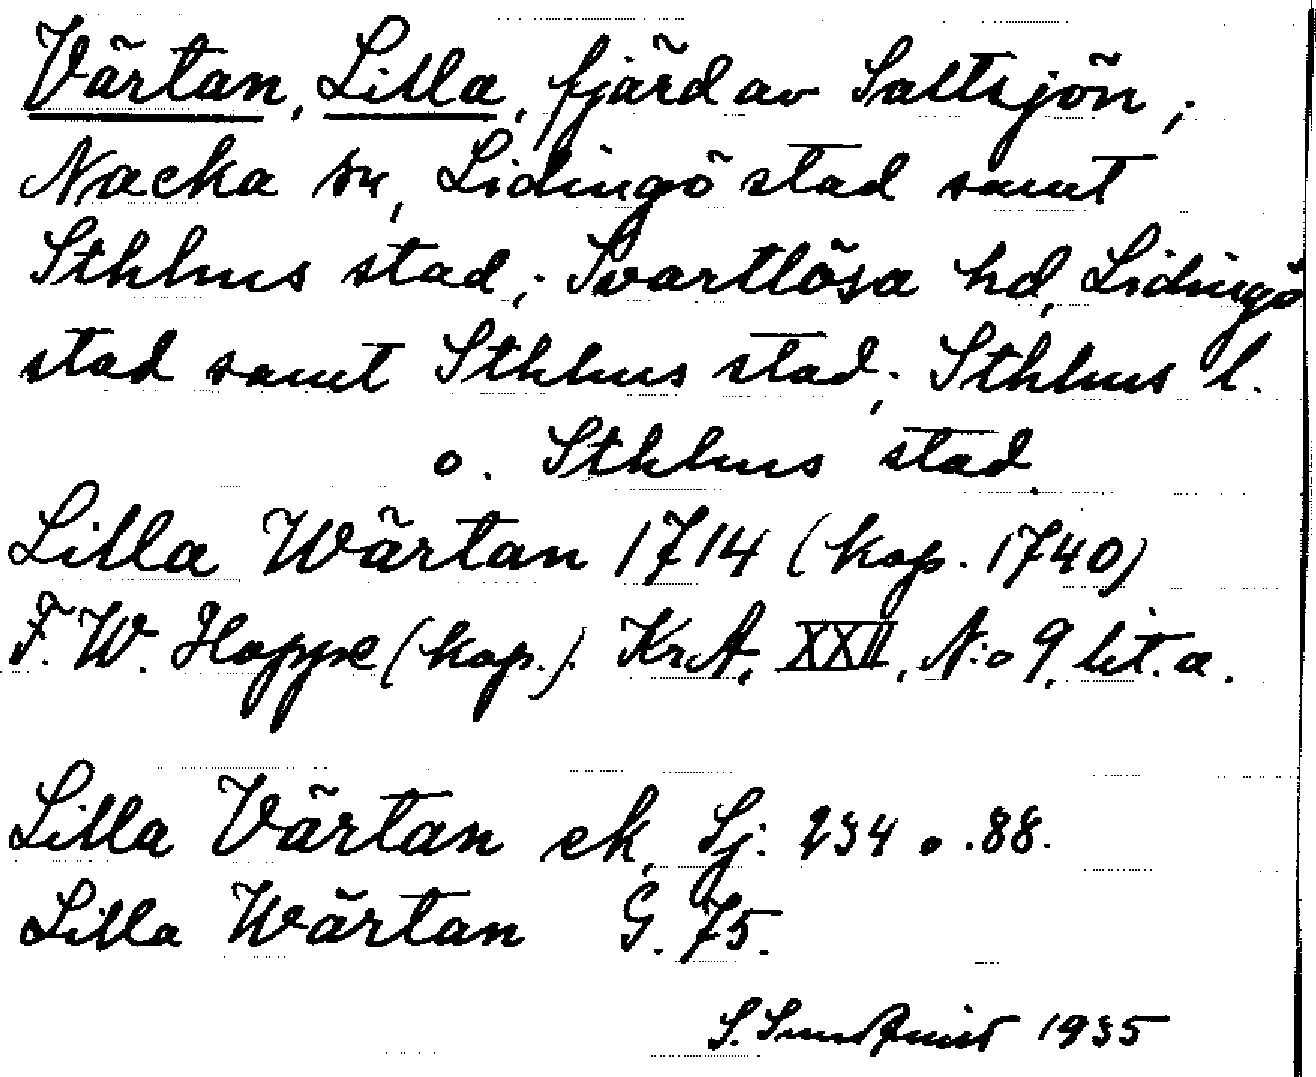 Värtan, Lilla, fjärd av Saltsjön;
Nacka sn, Lidingö stad samt
Sthlms stad; Svartlösa hd, Lidingö
stad samt Sthlms stad; Sthlms l.
o. Sthlms stad.
Lilla Wärtan 1714 (kop. 1740)
F. W. Hoppe (kop.). KrA, XXII, N:o 9, lit. a.
Lilla Värtan ek, Sj: 234 o. 88.
Lilla Wärtan G. 75.
S. Sundquist 1935